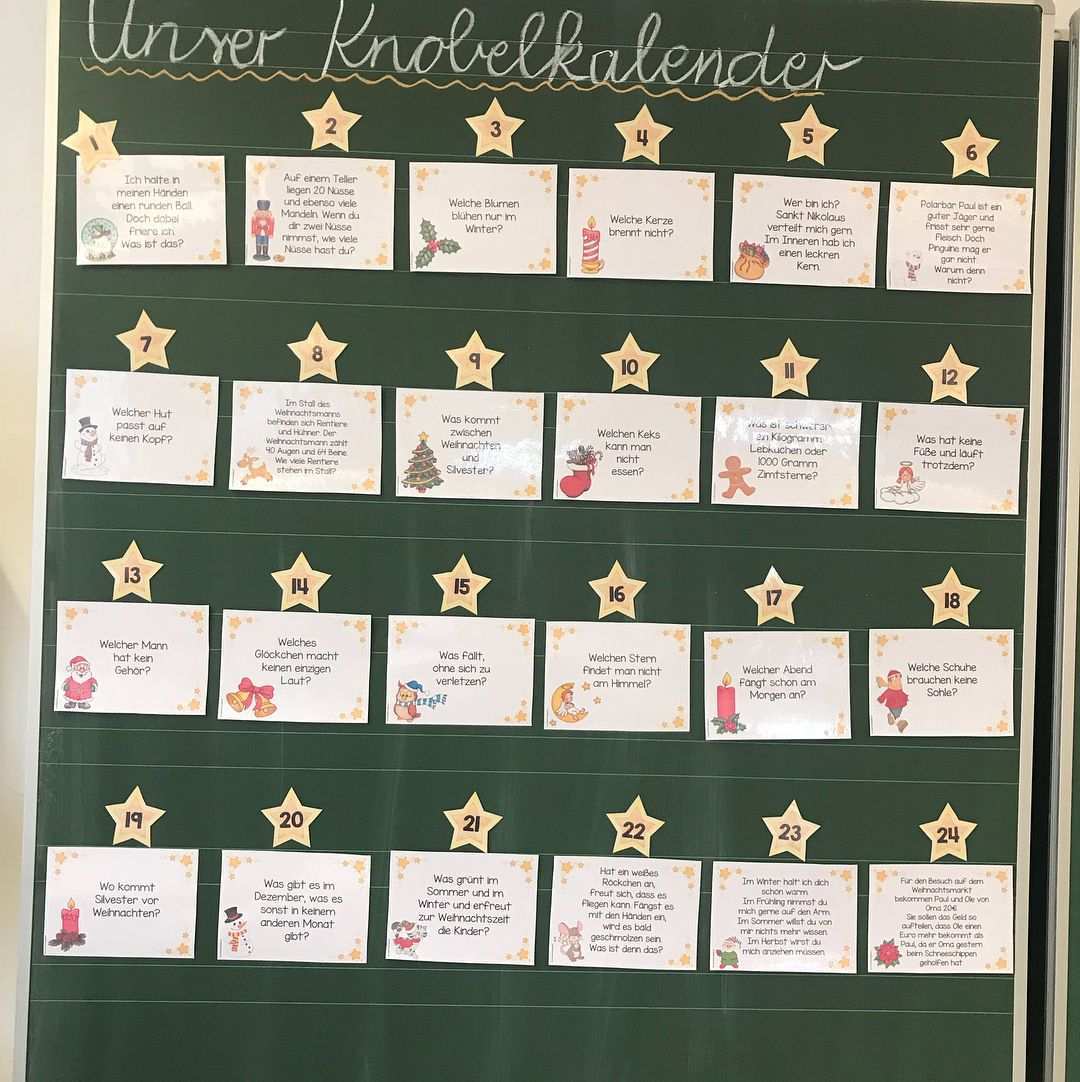 Unser Knobelkalender
1
Ich halte in
meinen Händen
einen runden Ball.
Doch dabei
friere ich.
Was ist das?
2
Auf einem Teller
liegen 20 Nüsse
und ebenso viele
Mandeln. Wenn du
dir zwei Nüsse
nimmst, wie viele
Nüsse hast du?
3
Welche Blumen
blühen nur im
Winter?
4
Welche Kerze
brennt nicht?
5
Wer bin ich?
Sankt Nikolaus
verteilt mich gern.
Im Inneren hab ich
einen leckren
Kern.
6
Polarbär Paul ist ein
guter Jäger und
frisst sehr gerne
Fleisch. Doch
Pinguine mag er
gar nicht.
Warum denn
nicht?
7
Welcher Hut
passt auf
keinen Kopf?
8
Im Stall des
Weihnachtsmanns
befinden sich Rentiere
und Hühner. Der
Weihnachtsmann zählt
40 Augen und 64 Beine.
Wie viele Rentiere
stehen im Stall?
9
Was kommt
zwischen
Weihnachten
und
Silvester?
10
Welchen Keks
kann man
nicht
essen?
11
Was ist schwerer
ein Kilogramm
Lebkuchen oder
1000 Gramm
Zimtsterne?
12
Was hat keine
Füße und läuft
trotzdem?
13
Welcher Mann
hat kein
Gehör?
14
Welches
Glöckchen macht
keinen einzigen
Laut?
15
Was fällt,
ohne sich zu
verletzen?
16
Welchen Stern
findet man nicht
am Himmel?
17
Welcher Abend
fängt schon am
Morgen an?
18
Welche Schuhe
brauchen keine
Sohle?
19
Wo kommt
Silvester vor
Weihnachten?
20
Was gibt es im
Dezember, was es
sonst in keinem
anderen Monat
gibt?
21
Was grünt im
Sommer und im
Winter und erfreut
zur Weihnachtszeit
die Kinder?
22
Hat ein weißes
Röckchen an,
freut sich, dass es
fliegen kann. Fängst es
mit den Händen ein,
wird es bald
geschmolzen sein.
Was ist denn das?
23
Im Winter halt' ich dich
schön warm.
Im Frühling nimmst du
mich gerne auf den Arm.
Im Sommer willst du von
mir nichts mehr wissen.
Im Herbst wirst du
mich anziehen müssen.
24
Für den Besuch auf dem
Weihnachtsmarkt
bekommen Paul und Ole von
Oma 20€.
Sie sollen das Geld so
aufteilen, dass Ole einen
Euro mehr bekommt als
Paul, da er Oma gestern
beim Schneeschippen
geholfen hat.